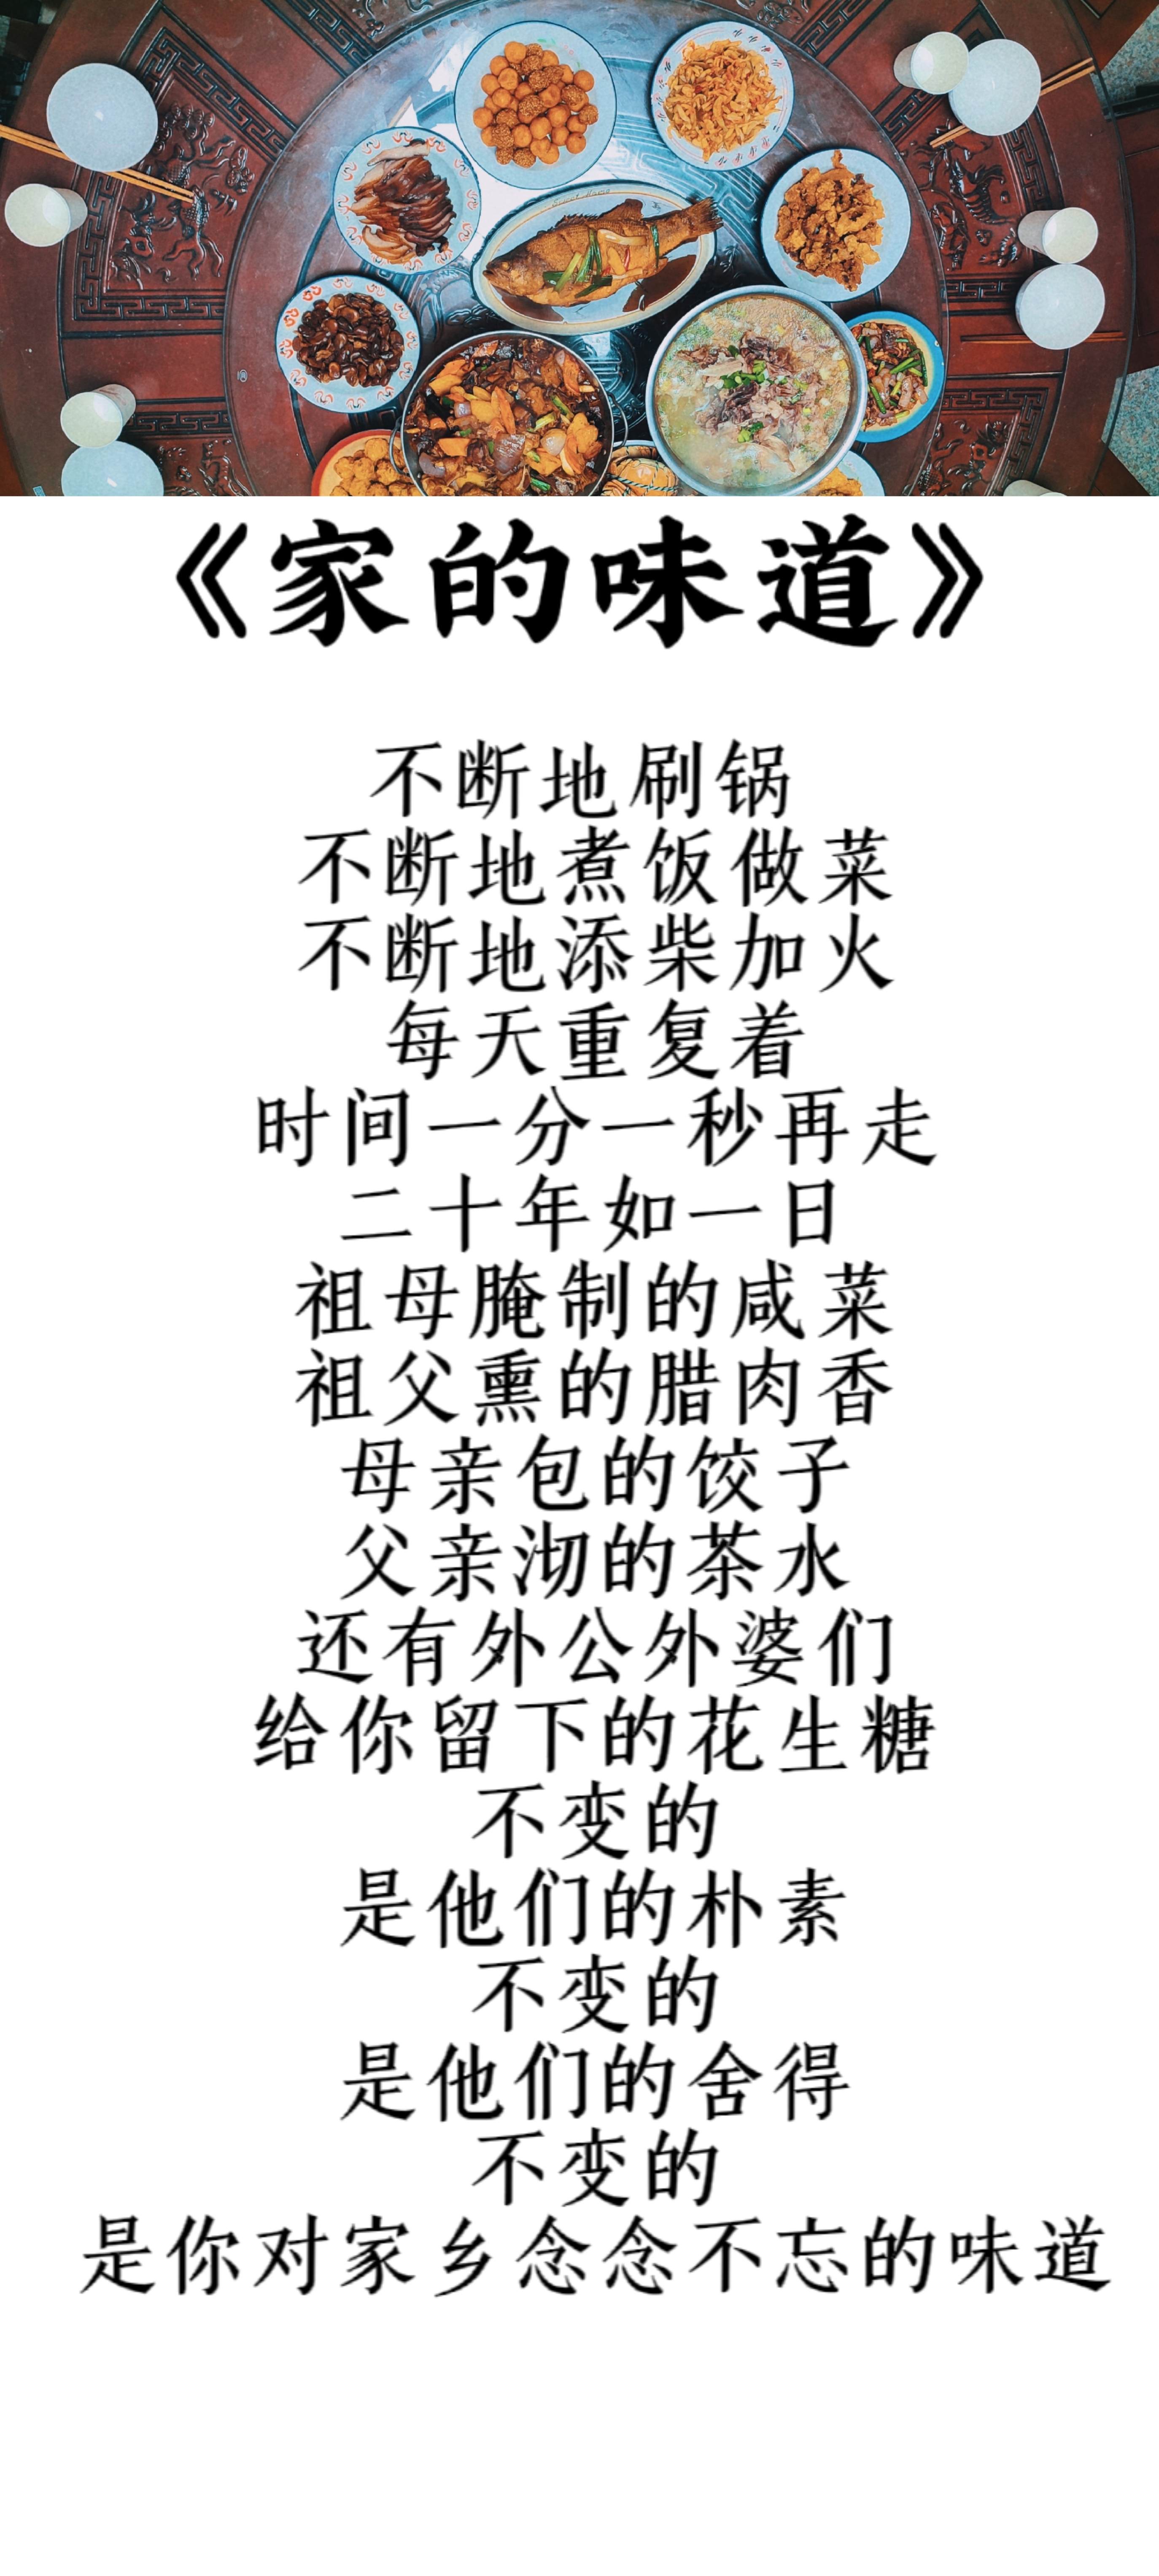 《家的味道》
不断地刷锅
不断地煮饭做菜
不断地添柴加火
每天重复着
时间一分一秒再走
二十年如一日
祖母腌制的咸菜
祖父熏的腊肉香
母亲包的饺子
父亲沏的茶水
还有外公外婆们
给你留下的花生糖
不变的
是他们的朴素
不变的
是他们的舍得
不变的
是你对家乡念念不忘的味道